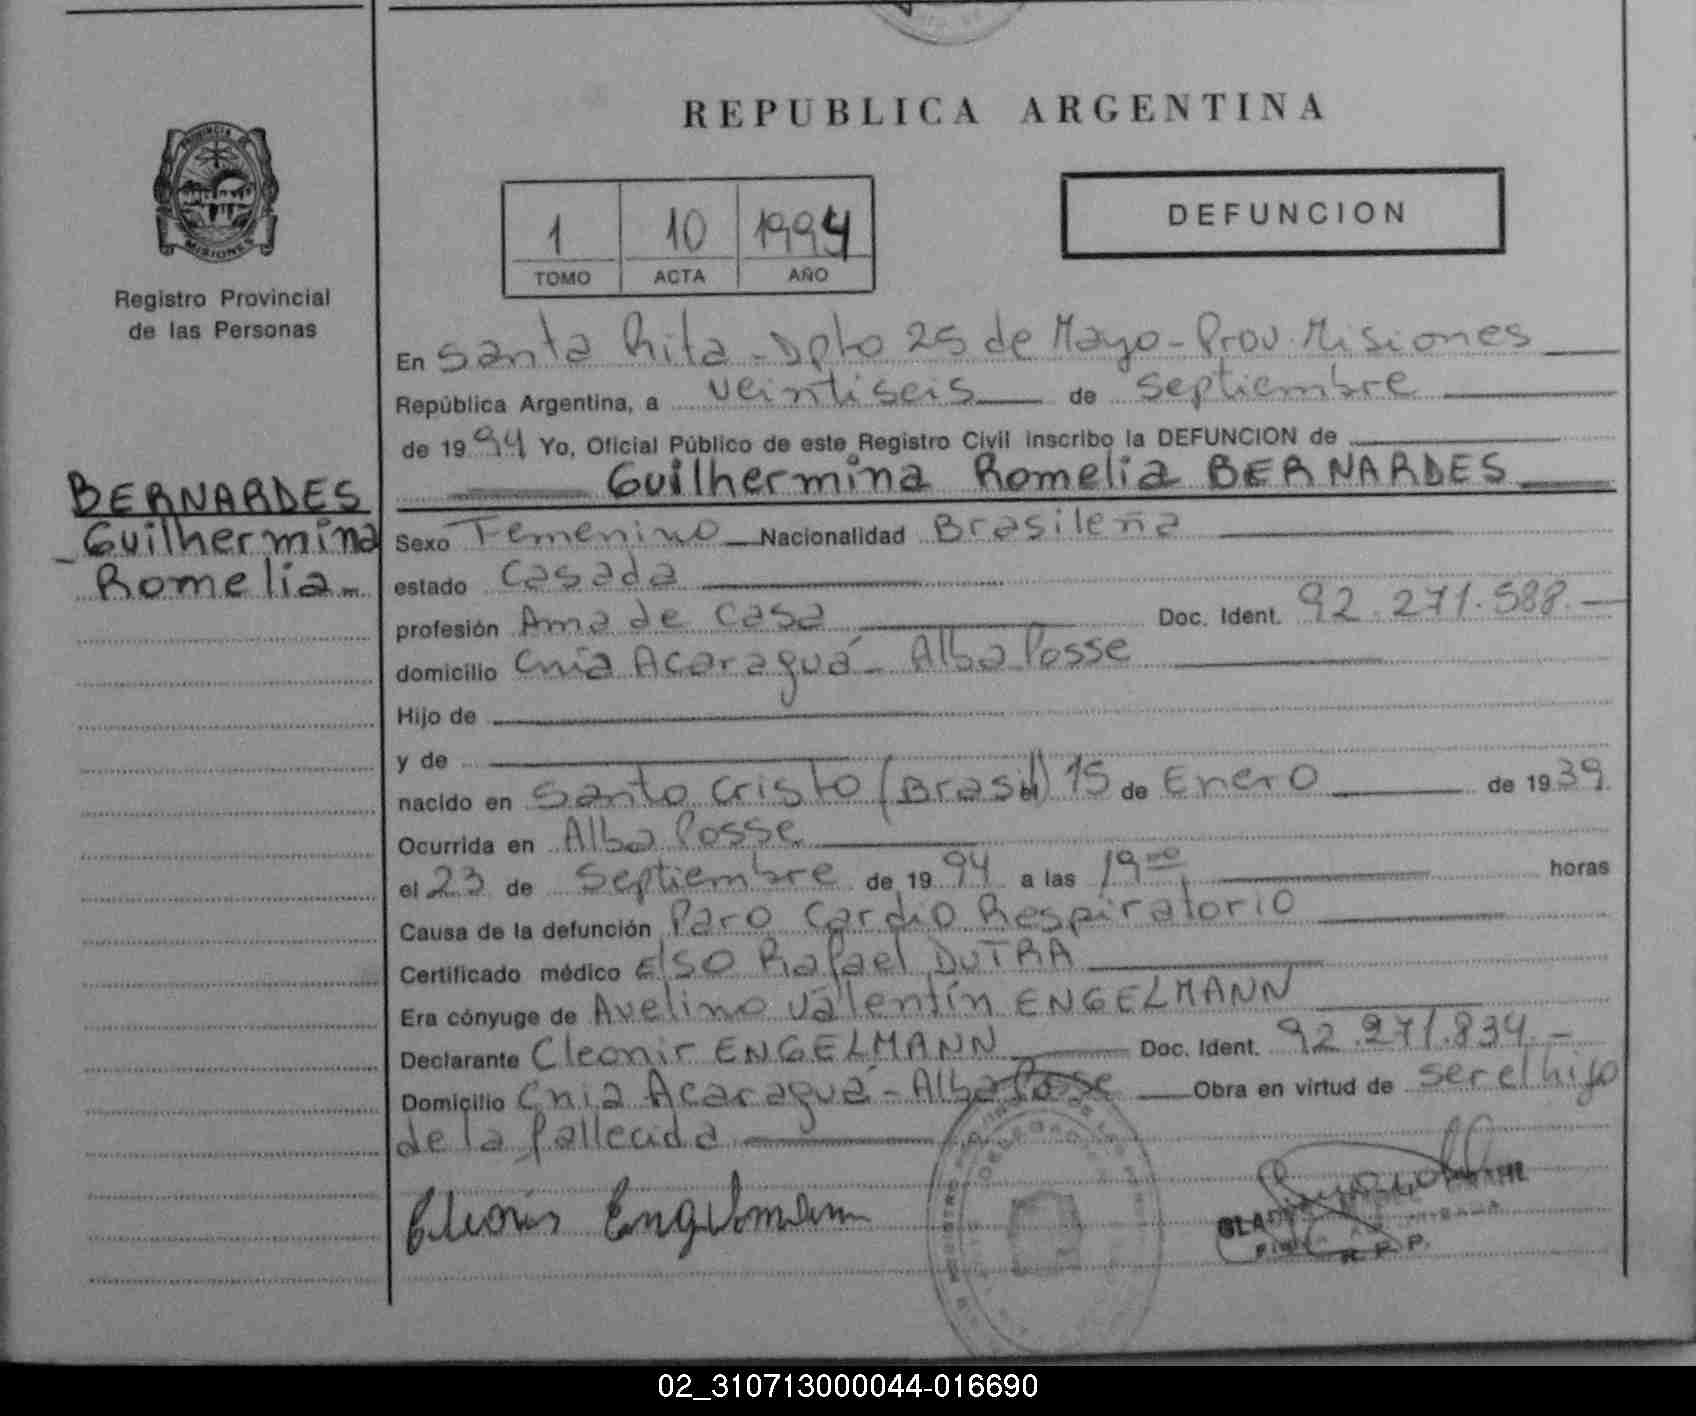 REPUBLICA ARGENTINA
PROVINCIA DE
MISIONES
Registro Provincial
de las Personas
1 10 1994
TOMO ACTA AÑO
DEFUNCION
En Santa Rita - Dpto 25 de Mayo - Prov. Misiones
República Argentina, a veintiseis de septiembre
de 1994 Yo, Oficial Público de este Registro Civil inscribo la DEFUNCION de
Guilhermina Romelia BERNARDES
BERNARDES
Guilhermina
Romelia
Sexo Femenino Nacionalidad Brasileña
estado Casada
profesión Ama de casa Doc. Ident. 92.271.588.-
domicilio Cnia Acaraguá - Alba Posse
Hijo de
y de
nacido en Santo Cristo (Brasil) el 15 de Enero de 1939.
Ocurrida en Alba Posse
el 23 de Septiembre de 1994 a las 19 00 horas
Causa de la defunción Paro Cardio Respiratorio
Certificado médico Elso Rafael DUTRA
Era cónyuge de Avelino Valentín ENGELMANN
Declarante Cleonir ENGELMANN Doc. Ident. 92.271.834.-
Domicilio Cnia Acaraguá - Alba Posse Obra en virtud de ser el hijo
de la fallecida
Engelmann
R.P.P.
02_310713000044-016690